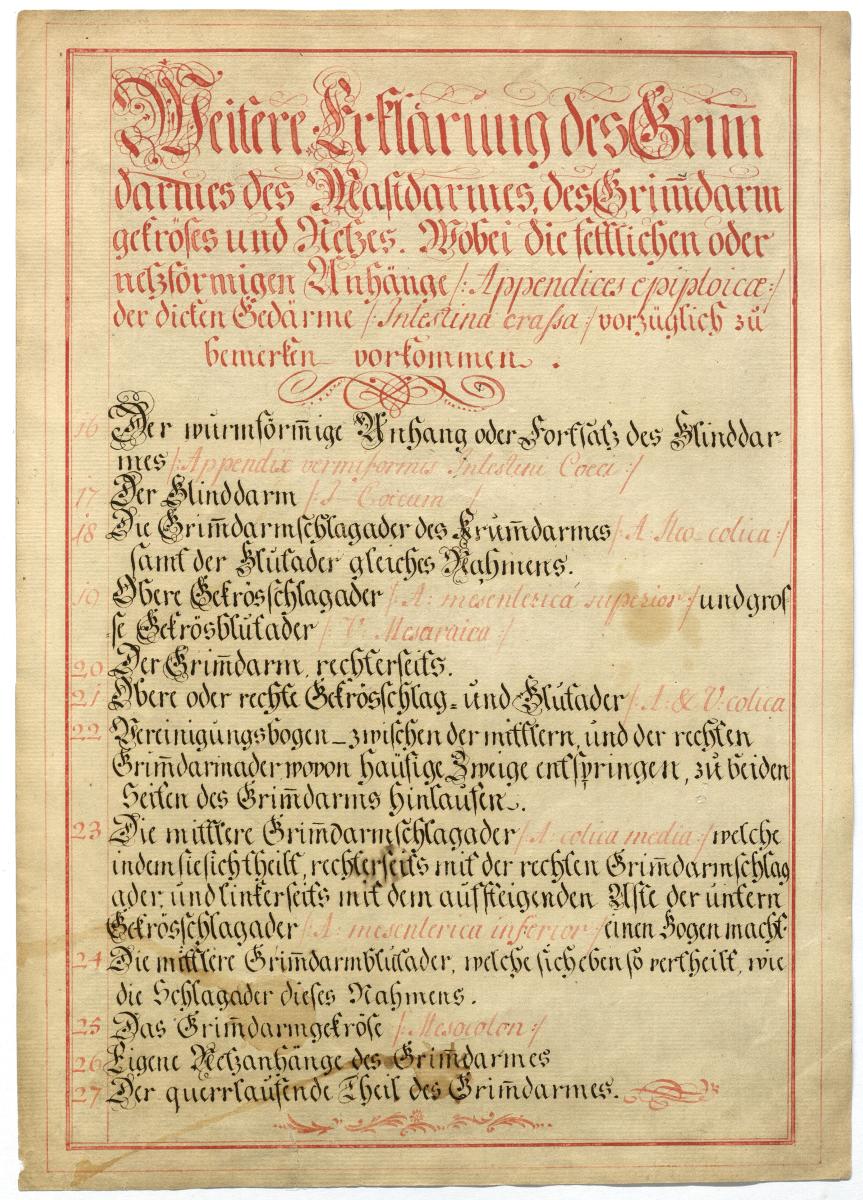 Weitere Erklärung des Grim̄
darmes des Mastdarmes, des Grim̄darm
gekröses und Netzes. Wobei die fettlichen oder
netzförmigen Anhänge /: Appendices epiploicæ :/
der dicken Gedärme /: Intestina crassa :/ vorzüglich zu
bemerken vorkommen.
16 Der wurmförm̄ige Anhang oder Fortsatz des Blinddar-
mes /: Appendix vermiformis Intestini Coeci :/
17 Der Blinddarm /: I. Coecum :/
18 Die Grim̄darmschlagader des Krum̄darmes /: A. Ileo-colica :/
samt der Blutader gleiches Nahmens.
19 Obere Gekrösschlagader /: A: mesenterica superior :/ und gros
se Gekrösblutader /: V. Mesaraica :/
20 Der Grim̄darm, rechterseits.
21 Obere oder rechte Gekrösschlag= und Blutader /: A: & V: colica
22 Vereinigungsbogen – zwischen der mittlern, und der rechten
Grim̄darmader wovon häufige Zweige entspringen, zu beiden
Seiten des Grim̄darms hinlaufen.
23 Die mittlere Grim̄darmschlagader /: A: colica media :/ welche
indem sie sich theilt, rechterseits mit der rechten Grim̄darmschlag
ader, und linkerseits mit dem aufsteigenden Aste der untern
Gekrösschlagader /: A: mesenterica inferior :/ einen Bogen macht.
24 Die mittlere Grim̄darmblutader, welche sich eben so vertheilt, wie
die Schlagader dieses Nahmens.
25 Das Grim̄darmgekröse /: Mesocolon :/
26 Eigene Netzanhänge des Grim̄darmes
27 Der querrlaufende Theil des Grim̄darmes.